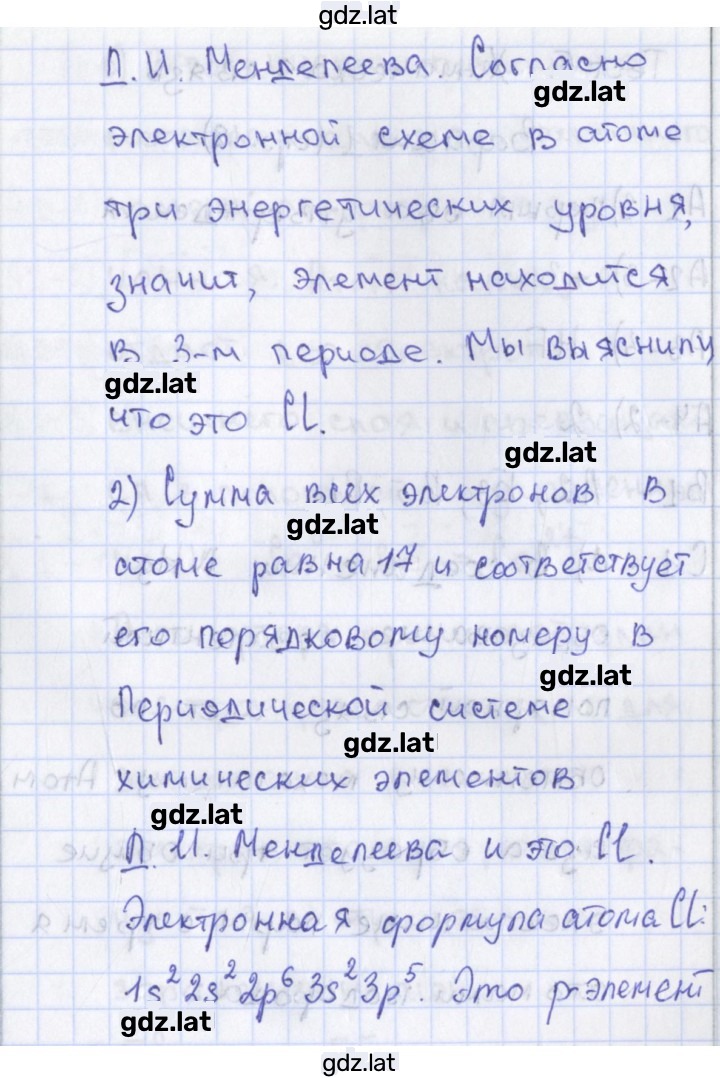 gdz.lat
Д. И. Менделеева. Согласно
gdz.lat
электронной схеме в атоме
три энергетических уровня,
значит, элемент находится
в 3-м периоде. Мы выяснили,
gdz.lat
что это Cl.
gdz.lat
2) Сумма всех электронов в
gdz.lat
атоме равна 17 и соответствует
его порядковому номеру в
gdz.lat
Периодической системе
gdz.lat
химических элементов
gdz.lat
Д. И. Менделеева и это Cl.
Электронная формула атома Cl:
1s² 2s² 2p⁶ 3s² 3p⁵. Это p-элемент
gdz.lat
gdz.lat